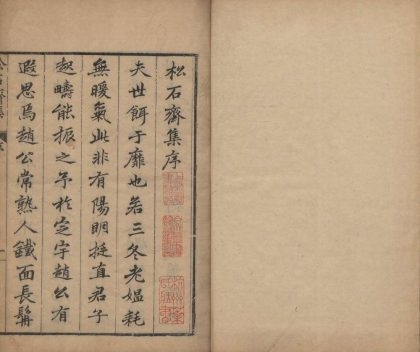 松石齋集序
夫世餌于靡也若三冬老媼耗
無暖氣此非有陽明挺直君子
起疇能振之予於定宇趙公有
遐思焉趙公常熟人鐵面長髯